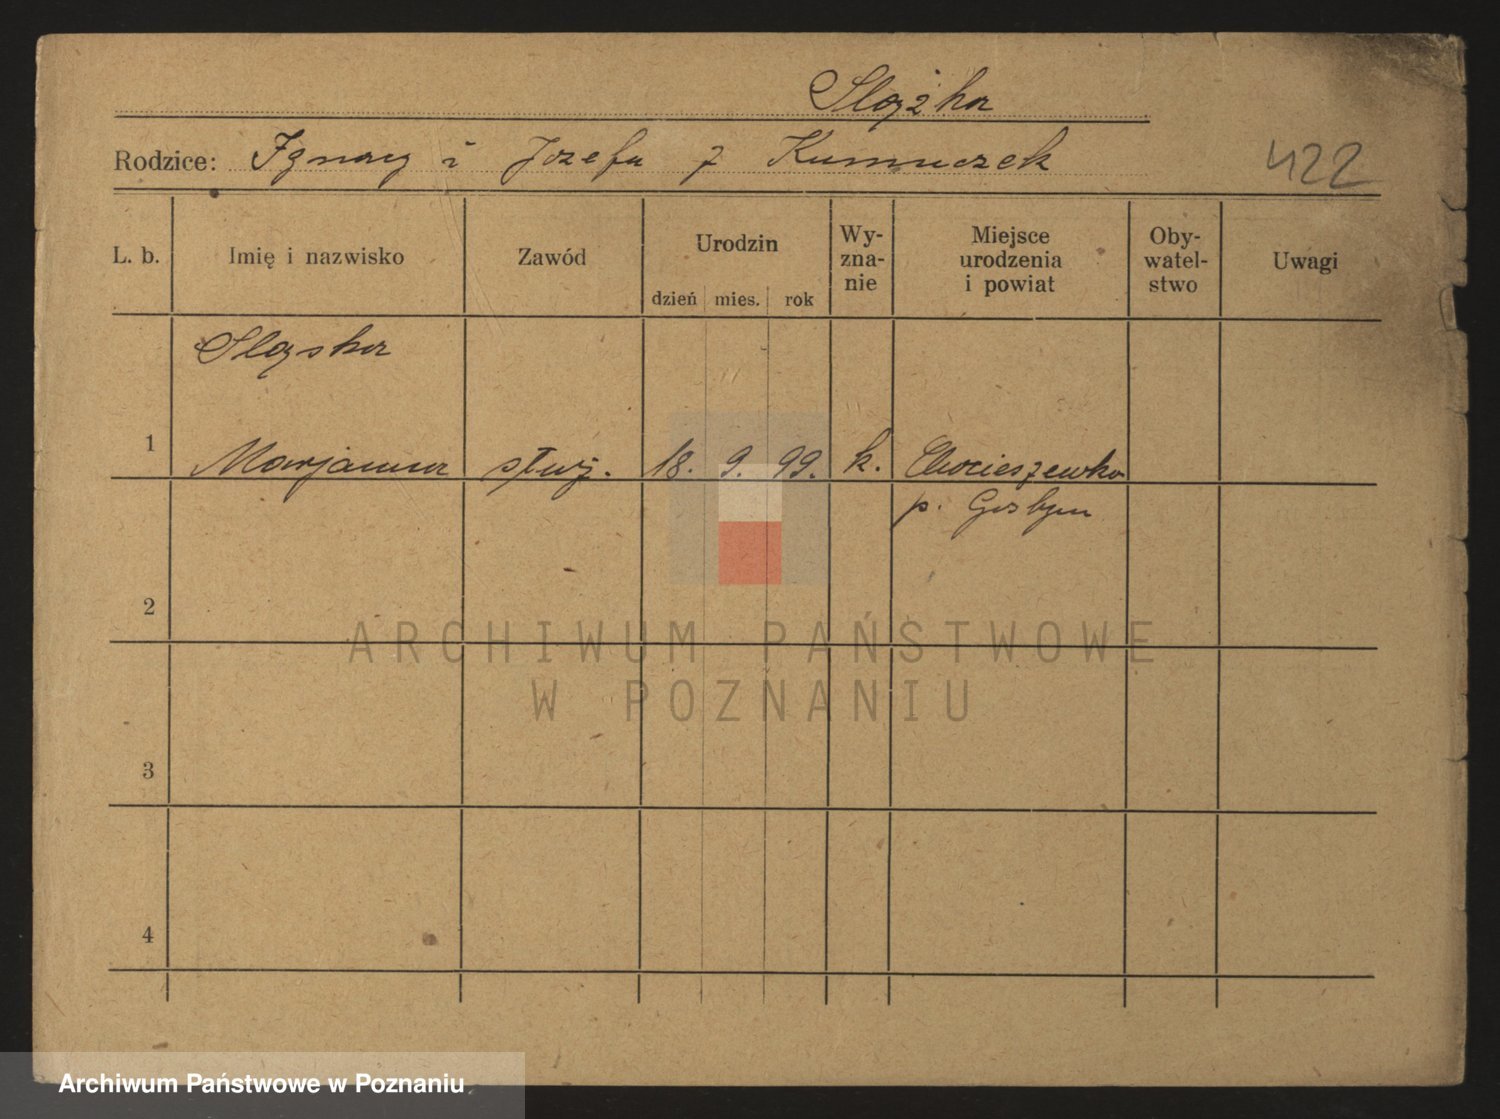 Slązka
Rodzice: Ignacy i Jozefa z
422
L. b. Imię i nazwisko Zawód Urodzin dzień mies. rok Wy-zna-nie Miejsce urodzenia i powiat Oby-watel-stwo Uwagi
Sląska
1 Marjanna służ. 18. 9. 99. k. Chocieszewko
p. Gostyn
2
3
4
ARCHIWUM PAŃSTWOWE
W POZNANIU
Archiwum Państwowe w Poznaniu